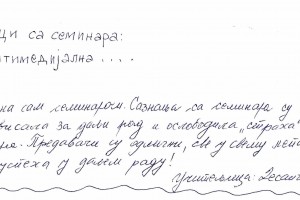 ци са семинара:
тимедијална ....
на сам семинаром. Сазнања са семинара су
висала за даљи рад и ослободила „страха"
Предавачи су одлични, све у свему
успеха у даљем раду!
Учитељица: